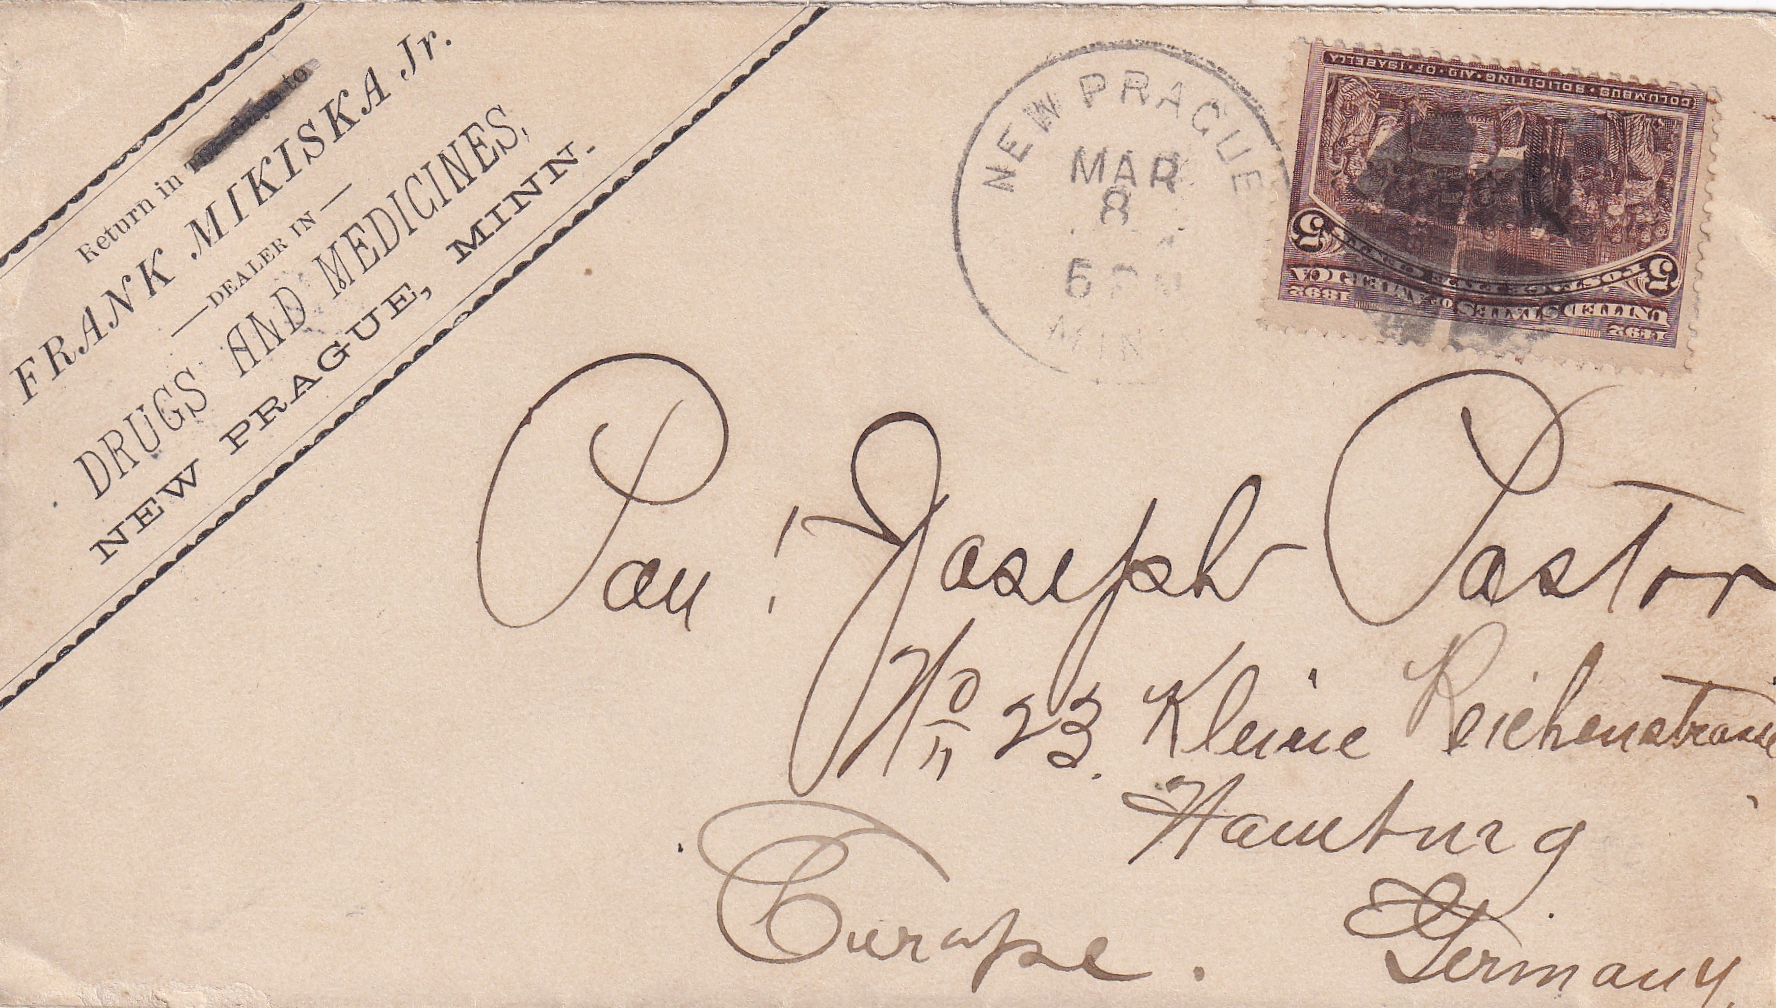 Return in Ten days to
FRANK MIKISKA Jr.
DEALER IN
DRUGS AND MEDICINES,
NEW PRAGUE, MINN.
NEW PRAGUE
MAR
8
MIN
COLUMBUS·SOLICITING·AID·OF·ISABELLA
5 5
UNITED STATES OF AMERICA
1892 1892
Pan! Joseph Pastor
No 23. Kleine Reichenstrasse
Hamburg
Europe. Germany